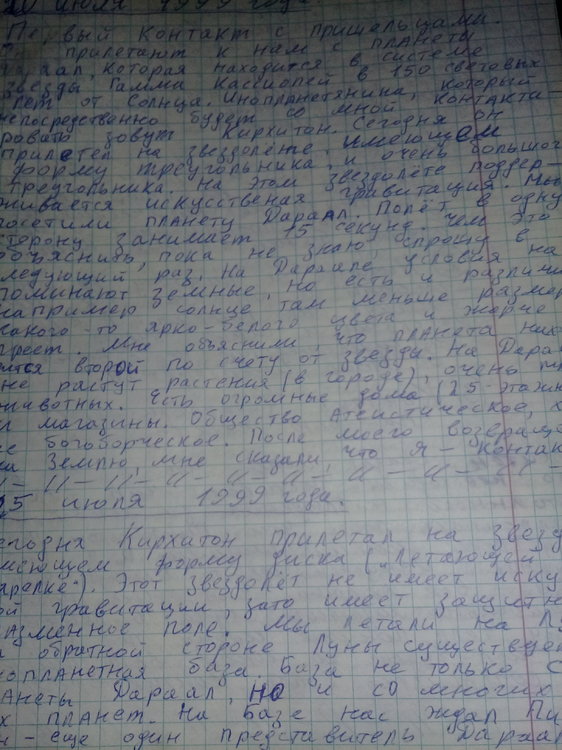 20 июля 1999 года.
Первый контакт с пришельцами.
прилетают к нам с планеты
Дараал, которая находится в системе
звезды Гамма Кассиопей в 150 световых
лет от Солнца. Инопланетянина, который
непосредственно будет со мной контакти-
ровать зовут Кирхитон. Сегодня он
прилетел на звездолёте, имеющем
форму треугольника, и очень большого
треугольника. На этом звездолёте поддер-
живается искусственая гравитация. Мы
посетили планету Дараал. Полёт в одну
сторону занимает 15 секунд. Чем это
объяснить, пока не знаю, спрошу в
следующий раз. На Дараале условия на-
поминают земные, но есть и различи
например солнце там меньше размер
какого-то ярко-белого цвета и жарче
греет. Мне объяснили, что планета нах
ится второй по счету от звезды. На Дараа
не растут растения (в городе), очень
животных. Есть огромные дома (25-этажн
и магазины. Общество Атеистическое,
не богоборческое. После моего возвраще
на Землю, мне сказали, что я - контак
- 11 - 11 - 11 - 11 - 11 - 11 - 11 -
25 июля 1999 года.
Сегодня Кирхитон прилетал на звезд
имеющем форму диска („Летающей
тарелке"). Этот звездолёт не имеет иску
ой гравитации, зато имеет защитн
азменное поле. Мы летали на Лу
а обратной стороне Луны существуе
нопланетная база. База не только с
ланеты Дараал, но и со многих
х планет. На базе нас ждал Пи
н - еще один представитель Дараал